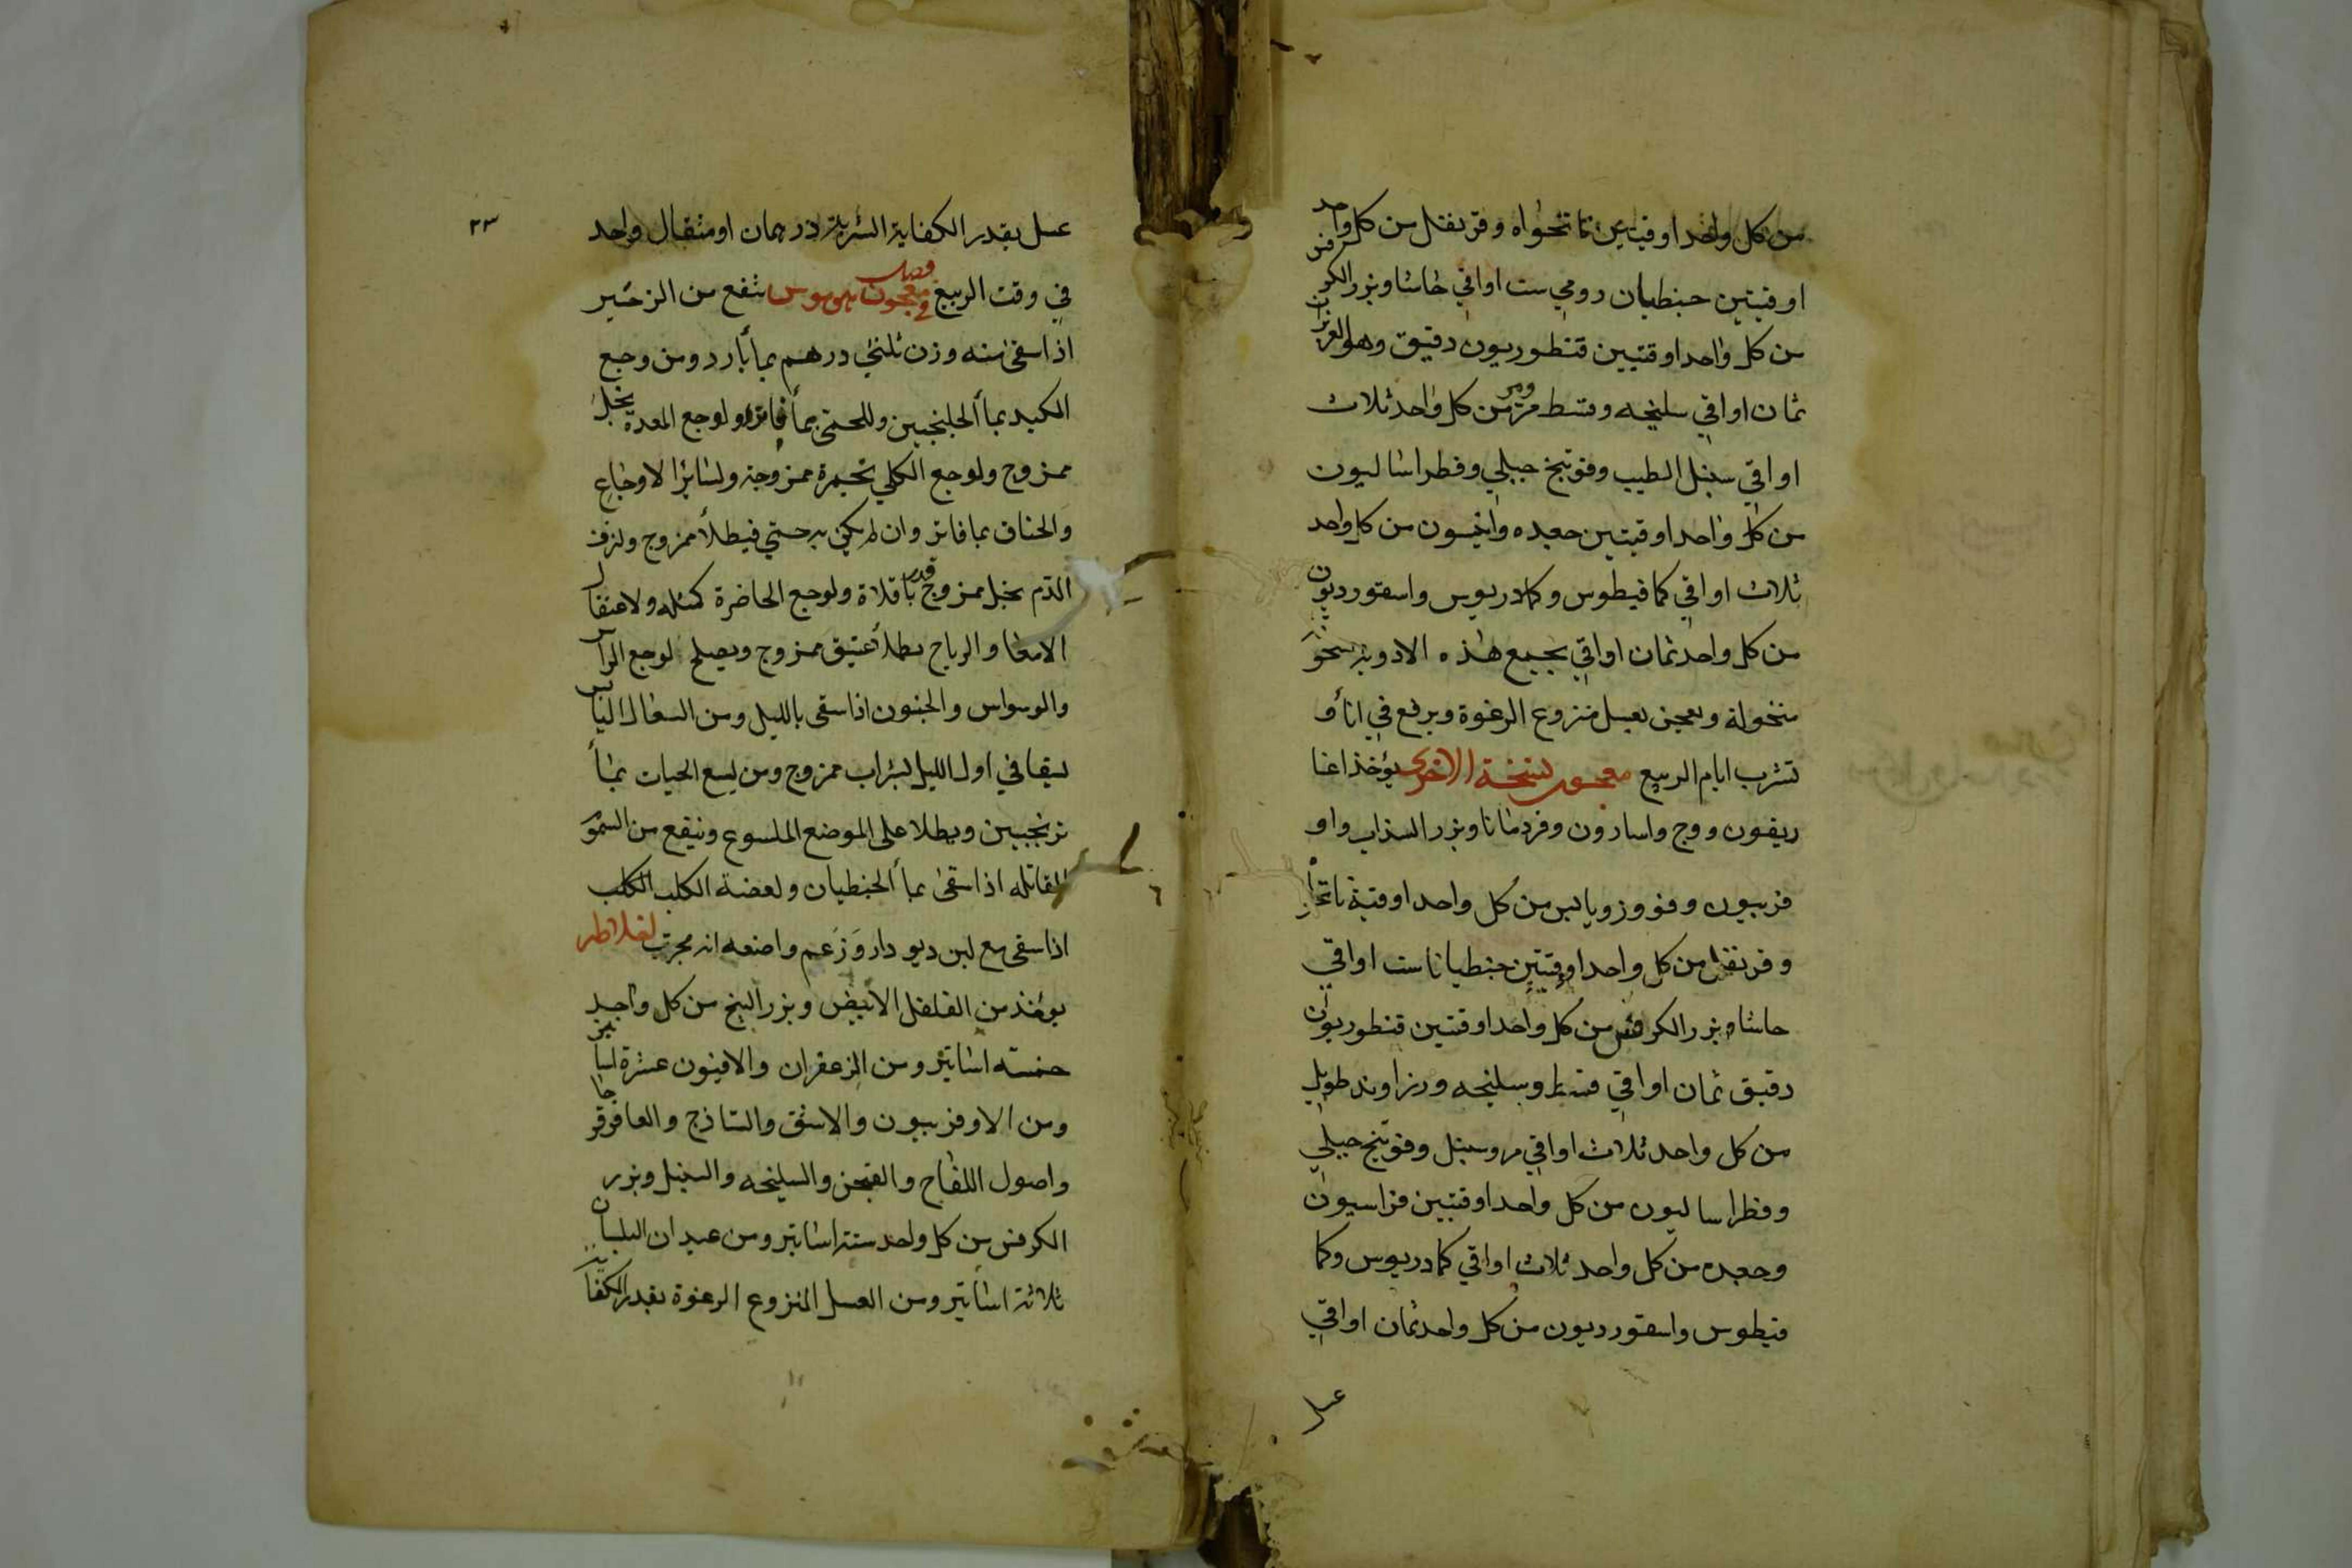 من كل واحد اوقيتين ناتخواه وقرنفل من كل واحد
اوقيتين جنطيان رومي ست اواقي حاشا وبزر الكرفس
من كل واحد اوقتيين قنطوريون دقيق وهو
ثمان اواقي سليخه وقسط مر ومر من كل واحد ثلاث
اواقي سنبل الطيب وفوتنج جبلي وفطراساليون
من كل واحد اوقيتين جعده وانيسون من كل واحد
ثلاث اواقي كمافيطوس وكمادريوس واسقورديون
من كل واحد ثمان اواقي يجمع هذه الادوية
منخولة ويعجن بعسل منزوع الرغوة ويرفع في انأ و
تشرب ايام الربيع معجون نسخة الاخرى يؤخذ اغا
ريقون ووج واسارون وقردمانا وبزر السذاب واو
فربيون وفو وزوفا يابس من كل واحد اوقية
وقرنفل من كل واحد اوقيتين جنطيانا ست اواقي
حاشا وبزر الكرفس من كل واحد اوقتين قنطوريون
دقيق ثمان اواقي قسط وسليخه وزراوند طويل
من كل واحد ثلاث اواقي مر وسنبل وفوتنج جبلي
وفطراساليون من كل واحد اوقيتين فراسيون
وجعده من كل واحد ثلاث اواقي كمادريوس وكما
فيطوس واسقورديون من كل واحد ثمان اواقي
عسل
٢٣
عسل بقدر الكفاية الشربة درهمان او مثقال واحد
في وقت الربيع فصل في معجون ينفع من الزحير
اذا سقى منه وزن ثلثي درهم بمأ بارد ومن وجع
الكبد بمأ الجلنجبين وللحمى بمأ فاتر ولوجع المعدة بخل
ممزوج ولوجع الكلي بخمرة ممزوجة ولسائر الاوجاع
والخناق بما فاتر وان لم يكن به حمي فبطلأ ممزوج ولنزف
الدم بخل ممزوج قدر باقلاة ولوجع الخاصرة كمثله ولاعتقال
الامعا والرياح بطلأ عتيق ممزوج ويصلح لوجع الراس
والوسواس والجنون اذا سقى بالليل ومن السعال اليابس
يسقا في اول الليل بشراب ممزوج ومن لسع الحيات بمأ
ترنجبين ويطلا على الموضع الملسوع وينفع من السموم
القاتله اذا سقى بمأ الجنطيان ولعضة الكلب الكلب
اذا سقى مع لبن ديودار وزعم واضعه انه مجرب
يوخذ من الفلفل الابيض وبزر البنج من كل واحد
خمسه اساتير ومن الزعفران والافيون عشرة اساتير
ومن الاوفربيون والاشق والساذج والعاقرقرحا
واصول اللفاح والسليخه والسنبل وبزر
الكرفس من كل واحد ستة اساتير ومن عيدان البلسان
ثلاثة اساتير ومن العسل المنزوع الرغوة بقدر الكفاية